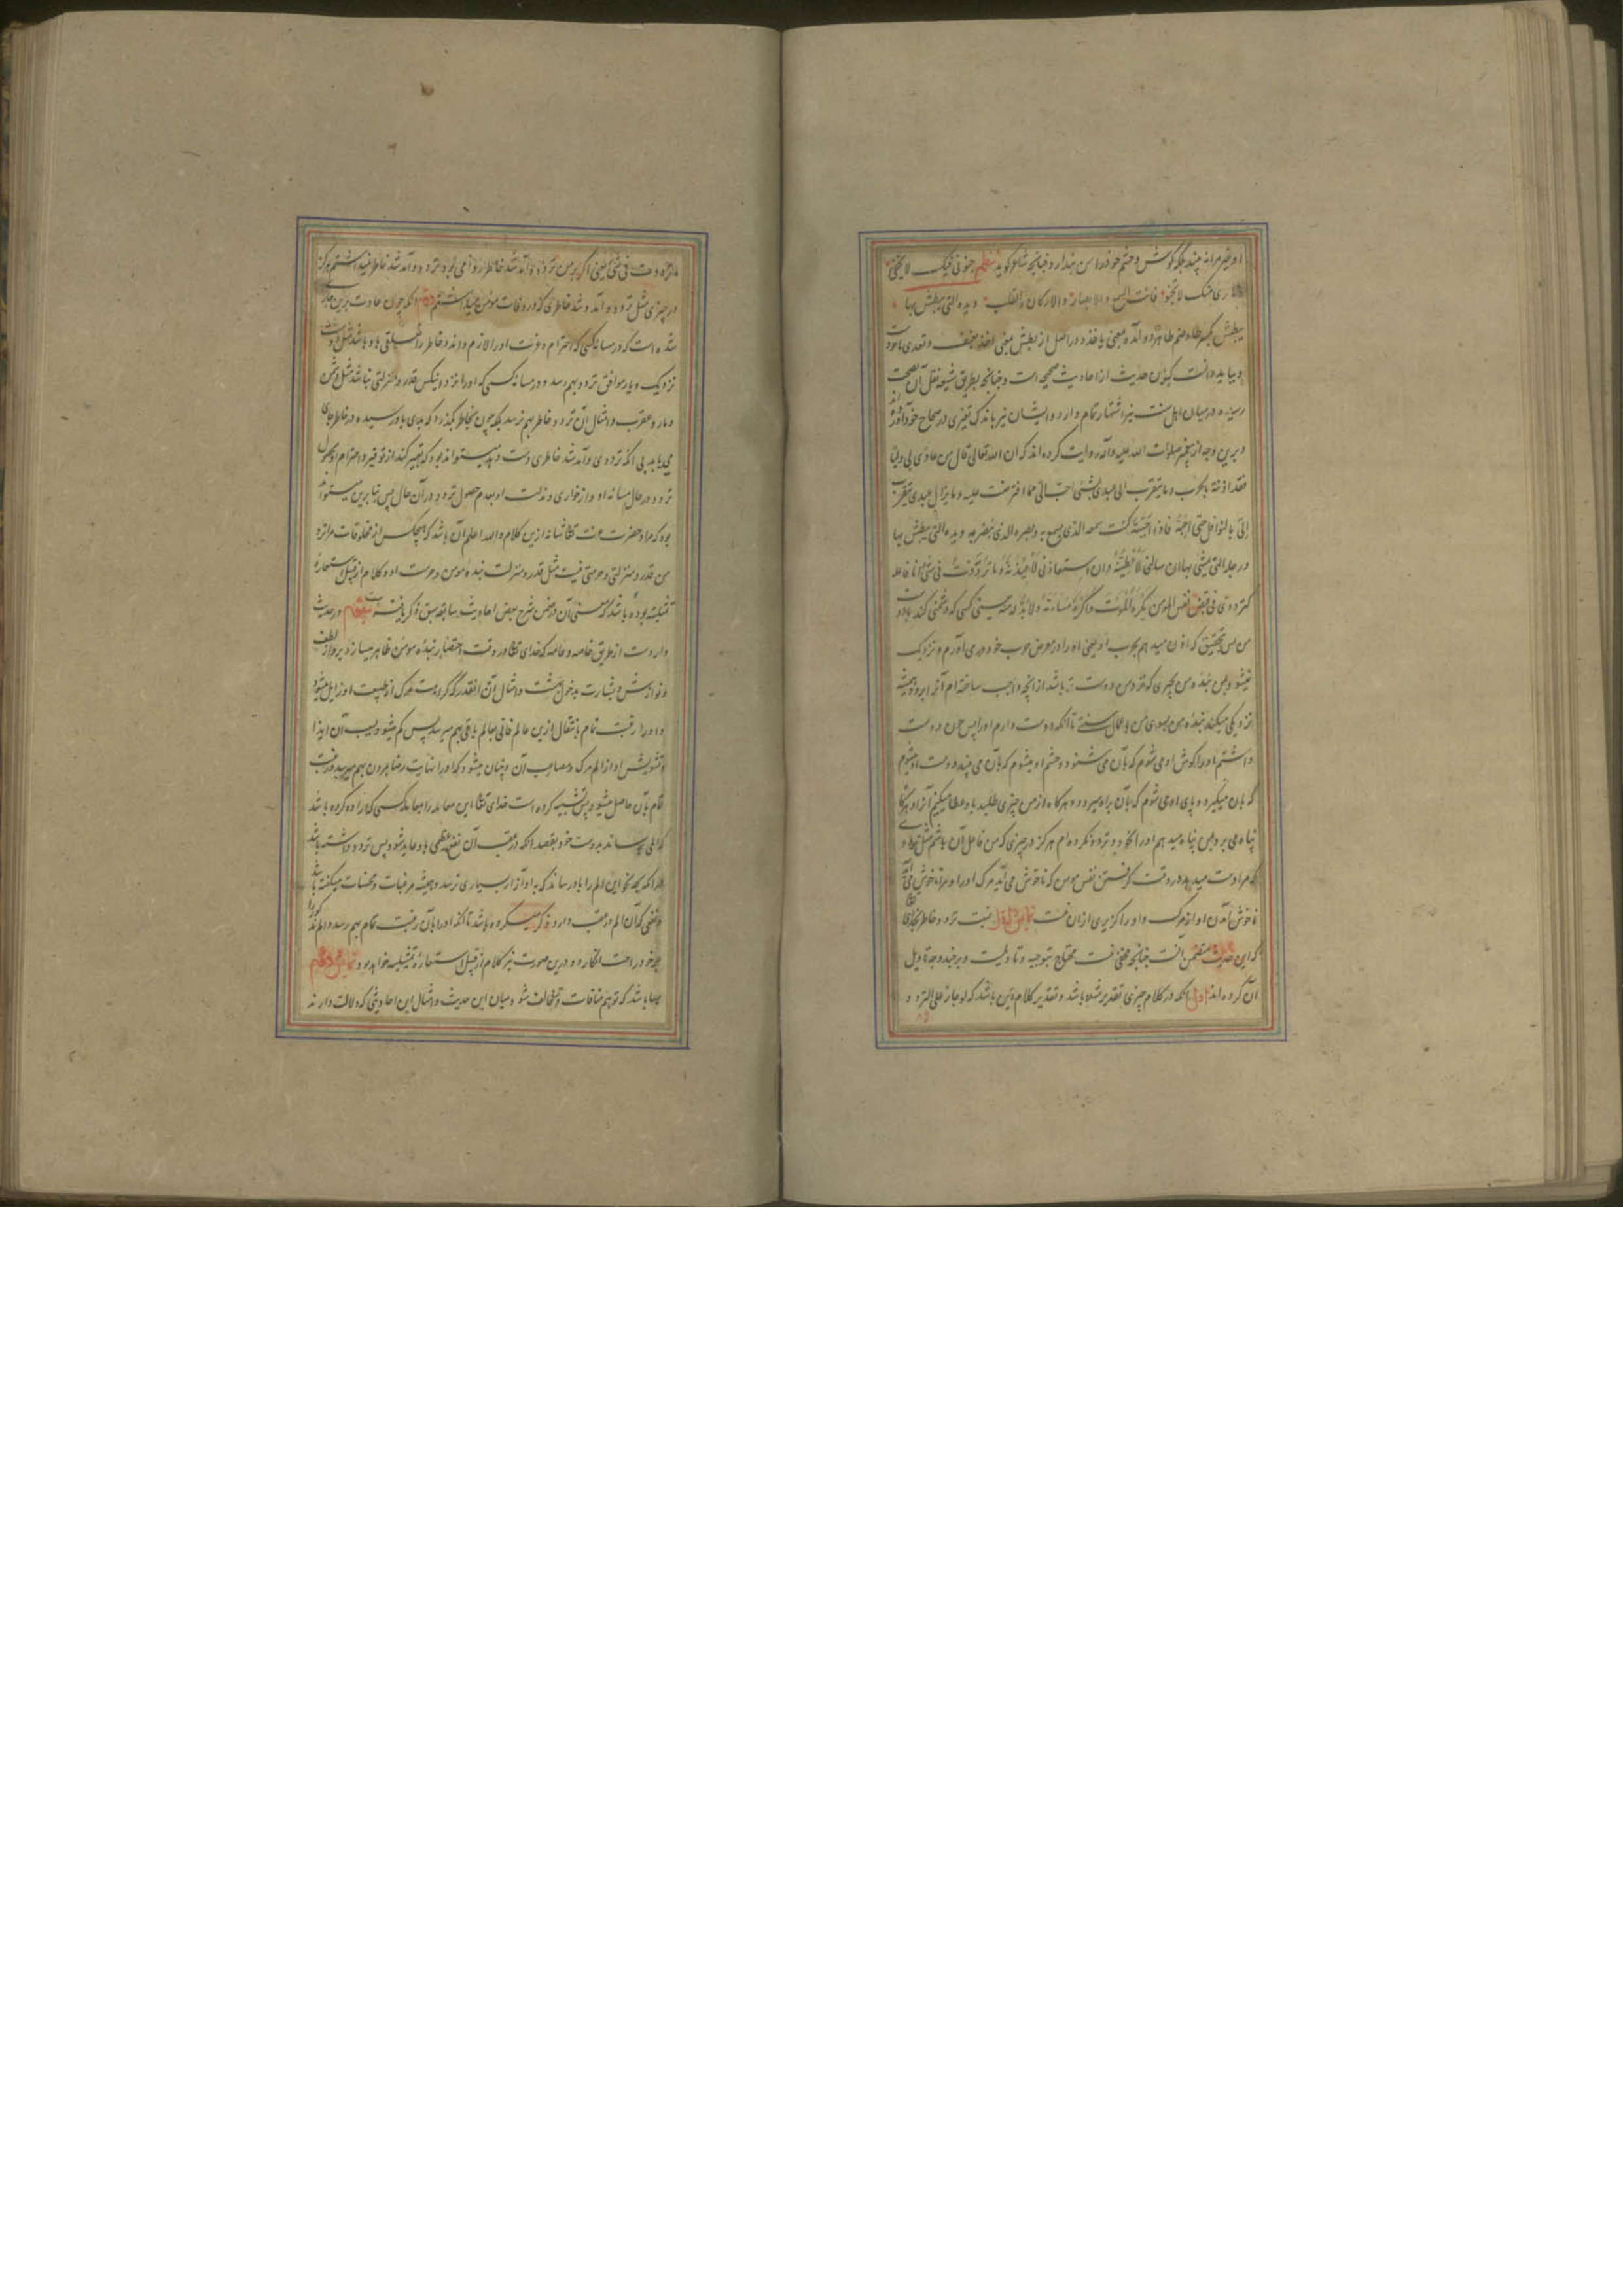 او بغیر مرا نه بیند بلکه گوش و چشم خود را من پندارد چنانچه شاعر گوید نظم جنونی فیک لا یخفی
و ناری منک لا تخبو فانت السمع والابصار والارکان والقلب ویده التی یبطش بها
یبطش بکسر طا و ضم طا هر دو آمده بمعنی یاخذ و در اصل از بطش بمعنی اخذ بعنف و تعدی ماخوذست
و بباید دانست که این حدیث از احادیث صحیحه است و چنانچه بطریق شیعه نقل آن بصحت
رسیده در میان اهل سنت نیز اشتهار تمام دارد و ایشان نیز باندک تغیری در صحاح خود آورده اند
و برین وجه از پیغمبر صلوات الله علیه وآله روایت کرده اند که ان الله تعالی قال من عادی لی ولیا
فقد اذنته بالحرب وما یتقرب الی عبدی بشئ احب الی مما افترضت علیه وما یزال عبدی یتقرب
الی بالنوافل حتی احبه فاذا احببته کنت سمعه الذی یسمع به وبصره الذی یبصر به ویده التی یبطش بها
ورجله التی یمشی بها ان سالنی لاعطینه وان استعاذنی لاعیذنه وما ترددت فی شئ انا فاعله
کترددی فی قبض نفس المومن یکره الموت واکره مساءته ولا بد له منه یعنی کسی که دشمنی کند با دوست
من پس بتحقیق که اذن میدهم بحرب او یعنی او را در معرض حرب خود در می آورم و نزدیک
نمیشود بمن بنده من بچیزی که نزد من دوست تر باشد از آنچه واجب ساخته ام آنرا برو و همیشه
نزدیکی میکند بنده من بسوی من باعمال سنتی تا آنکه دوست دارم او را پس چون دوست
داشتم او را گوش او می شوم که بآن می شنود و چشم او میشوم که بآن می بیند و دست او میشوم
که بان میگیرد و پای او می شوم که بآن براه میرود و هرگاه از من چیزی طلبد باو عطا میکنم آنرا و هرگاه
پناه می برد بمن پناه میدهم او را و تردد نکرده ام هرگز در چیزی که من فاعل آن باشم مثل ترددی
که مرا دست میدهد در وقت گرفتن نفس مومن که ناخوش می آید مرگ او را و مرا ناخوش می آید
ناخوش آمدن او از مرگ و او را گزیری ازان نیست نسبت تردد خاطر بخدای
که این حدیث متضمن آنست چنانچه مخفی نیست محتاج بتوجیه و تاویلست و بر چند وجه تاویل
آن کرده اند اول آنکه در کلام چیزی تقدیر شده باشد و تقدیر کلام این باشد که لو جاز علی التردد
ما ترددت فی شئ یعنی اگر بر من تردد و آمد شد خاطر روا می بود تردد و آمد شد خاطر نمیداشتم هرگز
در چیزی مثل تردد و آمد و شد خاطری که در وفات مومن میداشتم دوم آنکه چون عادت برین جاری
شده است که در مسائه کسی که احترام و عزت او را لازم دانند و خاطر را تعلقی باو باشد مثل دوست
نزدیک و یار موافق تردد بهم رسد و در مسائه کسی که او را نزد این کس قدر و منزلتی نباشد مثل دشمن
و مار و عقرب و امثال آن تردد خاطر بهم نرسد بلکه چون بخاطر گذرد که بدی باو رسیده در خاطر جای
می یابد بی آنکه ترددی و آمد شد خاطری دست دهد میتواند بود که تعبیر کنند از توقیر و احترام او بحصول
تردد در حال مسائه او و از خواری و مذلت او بعدم حصول تردد در آن حال پس بنا برین میتواند
بود که مراد حضرت عزت تعالی شانه ازین کلام والله اعلم آن باشد که هیچکس از مخلوقات مرا نزد
من قدر و منزلتی و حرمتی نیست مثل قدر و منزلت بنده مومن و حرمت او و کلام از قبیل استعاره
تمثیلیه بوده باشد که معنی آن در ضمن شرح بعض احادیث سابقه سبق ذکر یافته سیم آنکه در حدیث
وارد ست از طریق خاصه و عامه که خدای تعالی در وقت احتضار بنده مومن ظاهر میسازد برو از لطف
و نوازش و بشارت بدخول بهشت و امثال آن آنقدر که کراهت مرگ از طبیعت او زایل میشود
و او را رغبت تمام بانتقال ازین عالم فانی بعالم باقی بهم میرسد پس کم میشود بسبب آن ایذا
و تشویش او از الم مرگ و مصاحب آن و چنان میشود که او را نهایت رضا بمردن بهم میرسد و رغبت
تمام بآن حاصل میشود پس تشبیه کرده است خدای تعالی این معامله را بمعامله کسی که اراده کرده باشد
که المی رساند بدوست خود بقصد آنکه در عقب آن نفع عظیمی باو عاید شود پس تردد داشته باشد
در آنکه بچه نحو این الم را باو رساند که باو آزار بسیاری نرسد و همیشه مرغبات و محسنات میگفته باشد
و نفعی که آن الم در عقب دارد ذکر میکرده باشد تا آنکه او را بآن رغبت تمام بهم رسد و الم مذکور را
عین خود راحت انگارد و درین صورت نیز کلام از قبیل استعاره تمثیلیه خواهد بود
بسا باشد که توهم منافات و تخالف شود میان این حدیث و امثال این احادیثی که دلالت دارند